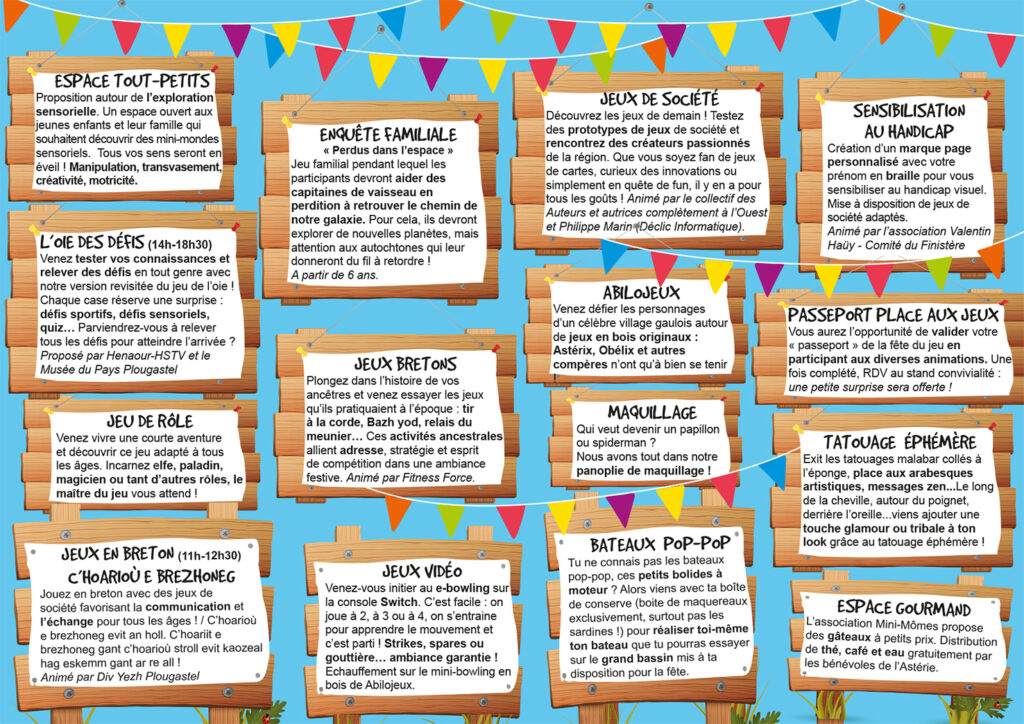 ESPACE TOUT-PETITS
Proposition autour de l'exploration
sensorielle. Un espace ouvert aux
jeunes enfants et leur famille qui
souhaitent découvrir des mini-mondes
sensoriels. Tous vos sens seront en
éveil ! Manipulation, transvasement,
créativité, motricité.
L'OIE DES DÉFIS (14h-18h30)
Venez tester vos connaissances et
relever des défis en tout genre avec
notre version revisitée du jeu de l'oie !
Chaque case réserve une surprise :
défis sportifs, défis sensoriels,
quiz... Parviendrez-vous à relever
tous les défis pour atteindre l'arrivée ?
Proposé par Henaour-HSTV et le
Musée du Pays Plougastel
JEU DE RÔLE
Venez vivre une courte aventure
et découvrir ce jeu adapté à tous
les âges. Incarnez elfe, paladin,
magicien ou tant d'autres rôles, le
maître du jeu vous attend !
JEUX EN BRETON (11h-12h30)
C'HOARIOÙ E BREZHONEG
Jouez en breton avec des jeux de
société favorisant la communication et
l'échange pour tous les âges ! / C'hoarioù
e brezhoneg evit an holl. C'hoariit e
brezhoneg gant c'hoarioù stroll evit kaozeal
hag eskemm gant ar re all !
Animé par Div Yezh Plougastel
ENQUÊTE FAMILIALE
« Perdus dans l'espace »
Jeu familial pendant lequel les
participants devront aider des
capitaines de vaisseau en
perdition à retrouver le chemin de
notre galaxie. Pour cela, ils devront
explorer de nouvelles planètes, mais
attention aux autochtones qui leur
donneront du fil à retordre !
A partir de 6 ans.
JEUX BRETONS
Plongez dans l'histoire de vos
ancêtres et venez essayer les jeux
qu'ils pratiquaient à l'époque : tir
à la corde, Bazh yod, relais du
meunier... Ces activités ancestrales
allient adresse, stratégie et esprit
de compétition dans une ambiance
festive. Animé par Fitness Force.
JEUX VIDÉO
Venez-vous initier au e-bowling sur
la console Switch. C'est facile : on
joue à 2, à 3 ou à 4, on s'entraine
pour apprendre le mouvement et
c'est parti ! Strikes, spares ou
gouttière... ambiance garantie !
Echauffement sur le mini-bowling en
bois de Abilojeux.
JEUX DE SOCIÉTÉ
Découvrez les jeux de demain ! Testez
des prototypes de jeux de société et
rencontrez des créateurs passionnés
de la région. Que vous soyez fan de jeux
de cartes, curieux des innovations ou
simplement en quête de fun, il y en a pour
tous les goûts ! Animé par le collectif des
Auteurs et autrices complètement à l'Ouest
et Philippe Marin (Déclic Informatique).
ABILOJEUX
Venez défier les personnages
d'un célèbre village gaulois autour
de jeux en bois originaux :
Astérix, Obélix et autres
compères n'ont qu'à bien se tenir
!
MAQUILLAGE
Qui veut devenir un papillon
ou spiderman ?
Nous avons tout dans notre
panoplie de maquillage !
BATEAUX POP-POP
Tu ne connais pas les bateaux
pop-pop, ces petits bolides à
moteur ? Alors viens avec ta boîte
de conserve (boite de maquereaux
exclusivement, surtout pas les
sardines !) pour réaliser toi-même
ton bateau que tu pourras essayer
sur le grand bassin mis à ta
disposition pour la fête.
SENSIBILISATION
AU HANDICAP
Création d'un marque page
personnalisé avec votre
prénom en braille pour vous
sensibiliser au handicap visuel.
Mise à disposition de jeux de
société adaptés.
Animé par l'association Valentin
Haüy - Comité du Finistère
PASSEPORT PLACE AUX JEUX
Vous aurez l'opportunité de valider votre
« passeport » de la fête du jeu en
participant aux diverses animations. Une
fois complété, RDV au stand convivialité :
une petite surprise sera offerte !
TATOUAGE ÉPHÉMÈRE
Exit les tatouages malabar collés à
l'éponge, place aux arabesques
artistiques, messages zen...Le long
de la cheville, autour du poignet,
derrière l'oreille...viens ajouter une
touche glamour ou tribale à ton
look grâce au tatouage éphémère !
ESPACE GOURMAND
L'association Mini-Mômes propose
des gâteaux à petits prix. Distribution
de thé, café et eau gratuitement par
les bénévoles de l'Astérie.